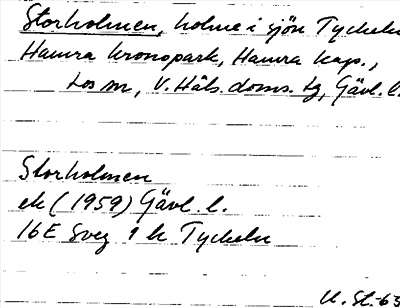 Storholmen, holme i sjön Tyckeln
Hamra kronopark, Hamra kap.,
Los sn, V. Häls. doms. tg, Gävl. l.
Storholmen
ek (1959) Gävl. l.
16E Sveg 1 h Tyckeln
U. St.-63